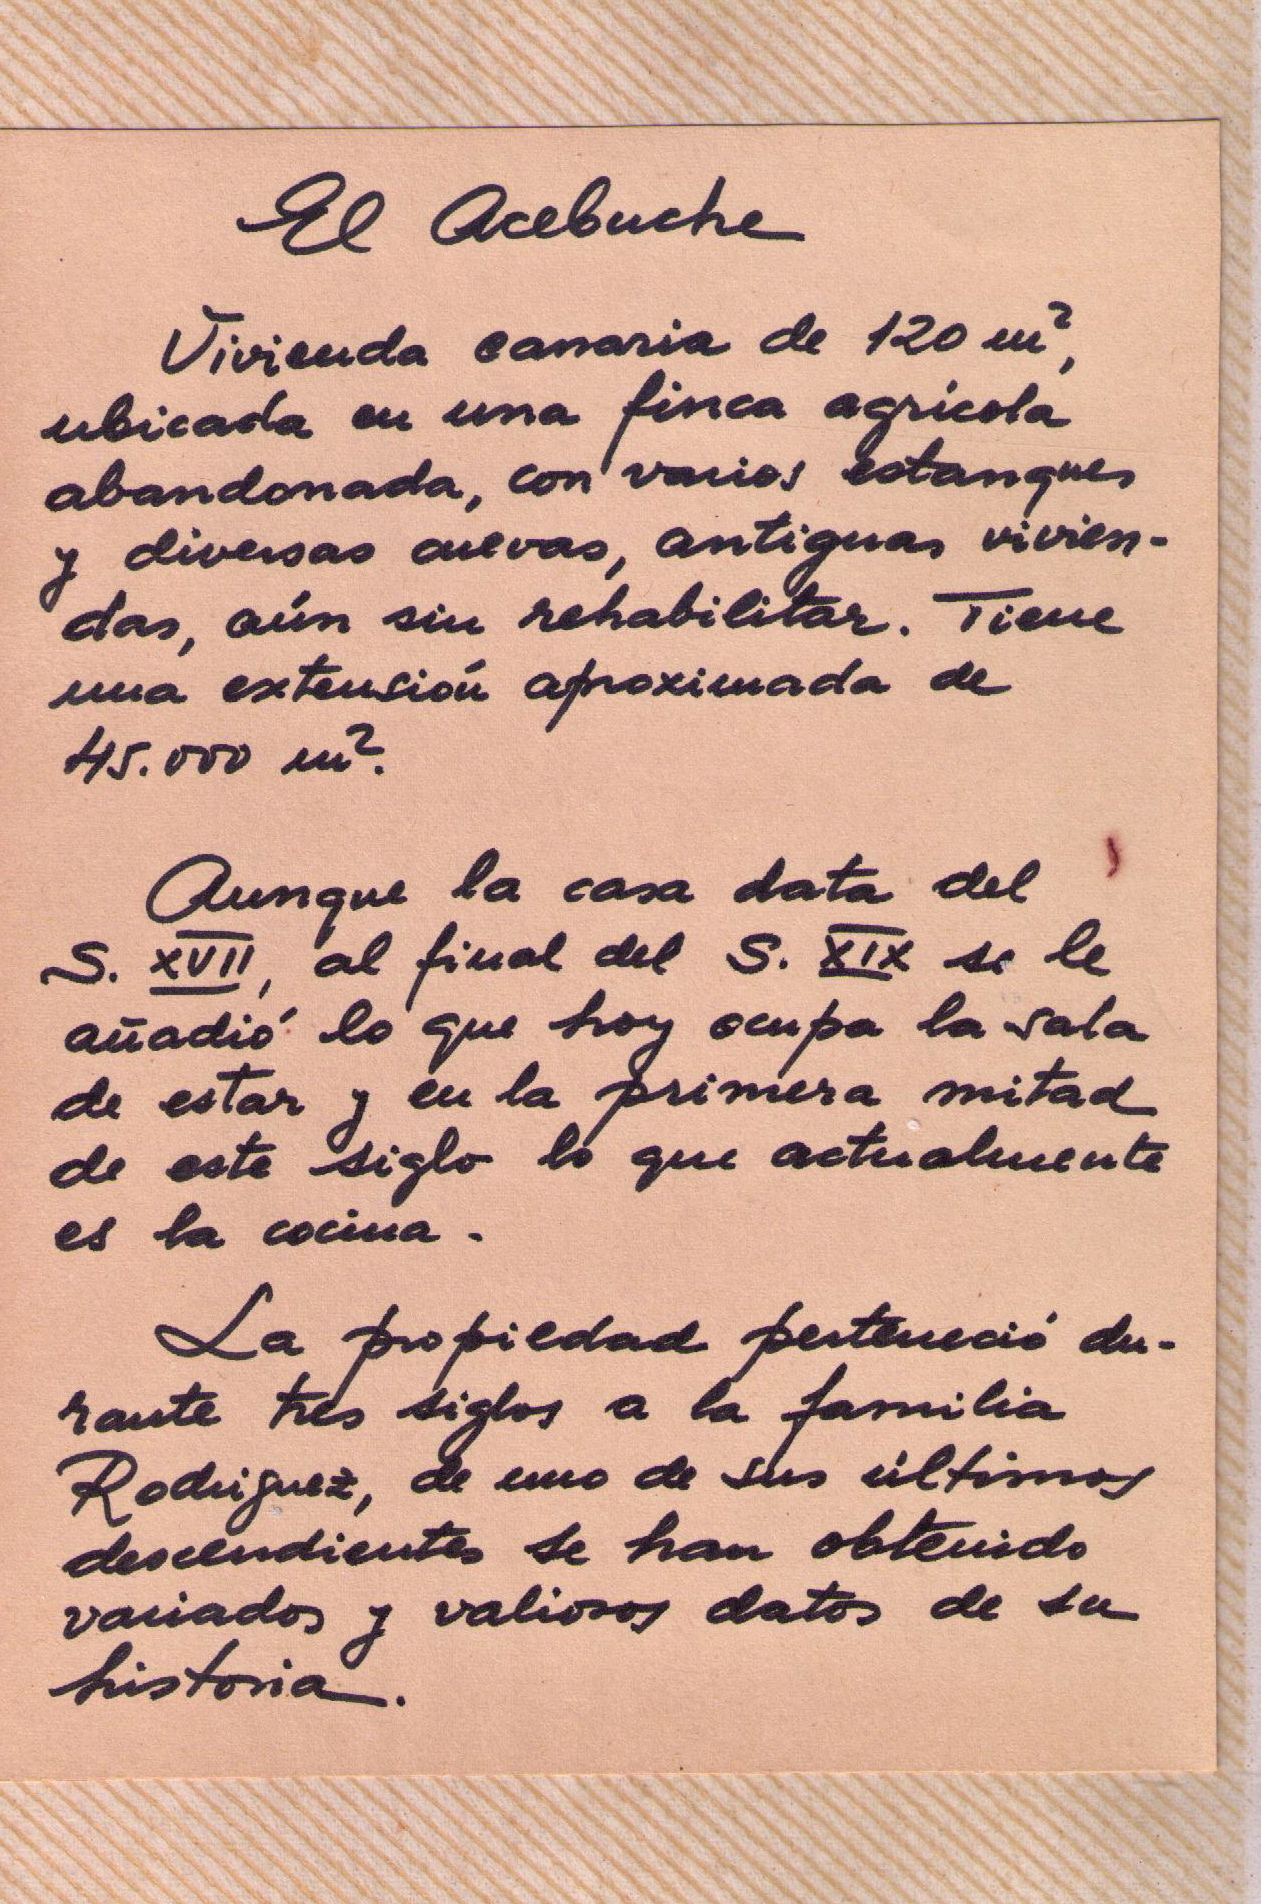 El Acebuche
Vivienda canaria de 120 m²,
ubicada en una finca agrícola
abandonada, con varios estanques
y diversas cuevas, antiguas vivien-
das, aún sin rehabilitar. Tiene
una extensión aproximada de
45.000 m².
Aunque la casa data del
S. XVII, al final del S. XIX se le
añadió lo que hoy ocupa la sala
de estar y en la primera mitad
de este siglo lo que actualmente
es la cocina.
La propiedad perteneció du-
rante tres siglos a la familia
Rodriguez, de uno de sus últimos
descendientes se han obtenido
variados y valiosos datos de su
historia.